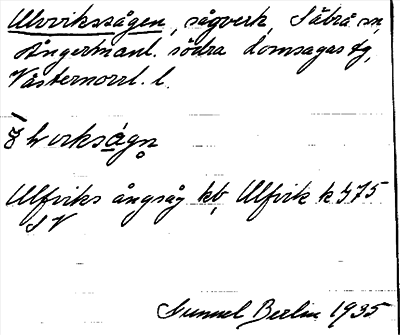 Ulvvikssågen, sågverk, Säbrå sn,
Ångermanl. södra domsagas fg,
Västernorrl. l.
Ulfviks ångsåg kb, Ulfvik k 475
SV
Gunnel Berlin 1935